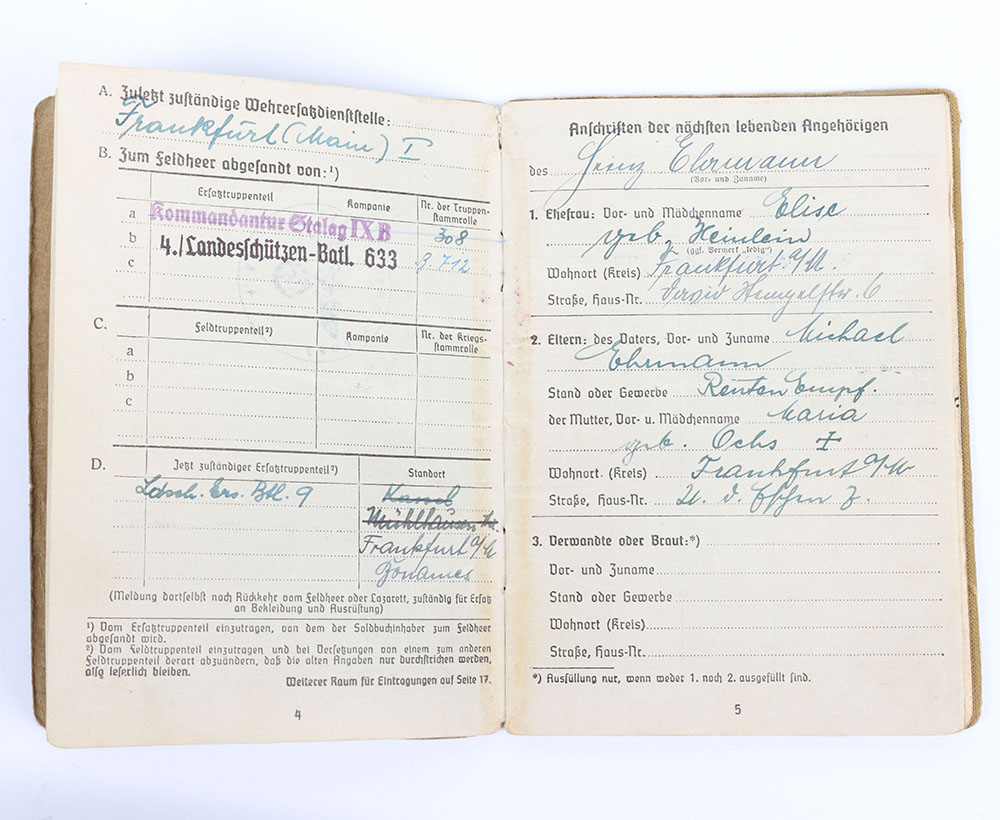 A. Zuletzt zuständige Wehrersatzdienststelle:
Frankfurt (Main) I
B. Zum Feldheer abgesandt von:¹)
Ersatztruppenteil Kompanie Nr. der Truppen-
stammrolle
a Kommandantur Stalag IX B 308
b 4./Landesschützen-Batl. 633
c 712
C. Feldtruppenteil²) Kompanie Nr. der Kriegs-
stammrolle
a
b
c
D. Jetzt zuständiger Ersatztruppenteil²) Standort
Ldsch. Ers. Btl. 9 Kassel
Mühlhausen
Frankfurt a/M
Bonames
(Meldung dortselbst nach Rückkehr vom Feldheer oder Lazarett, zuständig für Ersatz
an Bekleidung und Ausrüstung)
¹) Vom Ersatztruppenteil einzutragen, von dem der Soldbuchinhaber zum Feldheer
abgesandt wird.
²) Vom Feldtruppenteil einzutragen und bei Versetzungen von einem zum anderen
Feldtruppenteil derart abzuändern, daß die alten Angaben nur durchstrichen werden,
also leserlich bleiben.
Weiterer Raum für Eintragungen auf Seite 17.
4
Anschriften der nächsten lebenden Angehörigen
des Ehrmann
(Vor- und Zuname)
1. Ehefrau: Vor- und Mädchenname Elise
geb. Heinlein
(ggf. Vermerk „ledig“)
Wohnort (Kreis) Frankfurt a/M.
Straße, Haus-Nr. 6
2. Eltern: des Vaters, Vor- und Zuname Michael
Ehrmann
Stand oder Gewerbe Renten Empf.
der Mutter, Vor- u. Mädchenname Maria
geb. Ochs
Wohnort (Kreis) Frankfurt a/M
Straße, Haus-Nr.
3. Verwandte oder Braut:*)
Vor- und Zuname
Stand oder Gewerbe
Wohnort (Kreis)
Straße, Haus-Nr.
*) Ausfüllung nur, wenn weder 1. noch 2. ausgefüllt sind.
5